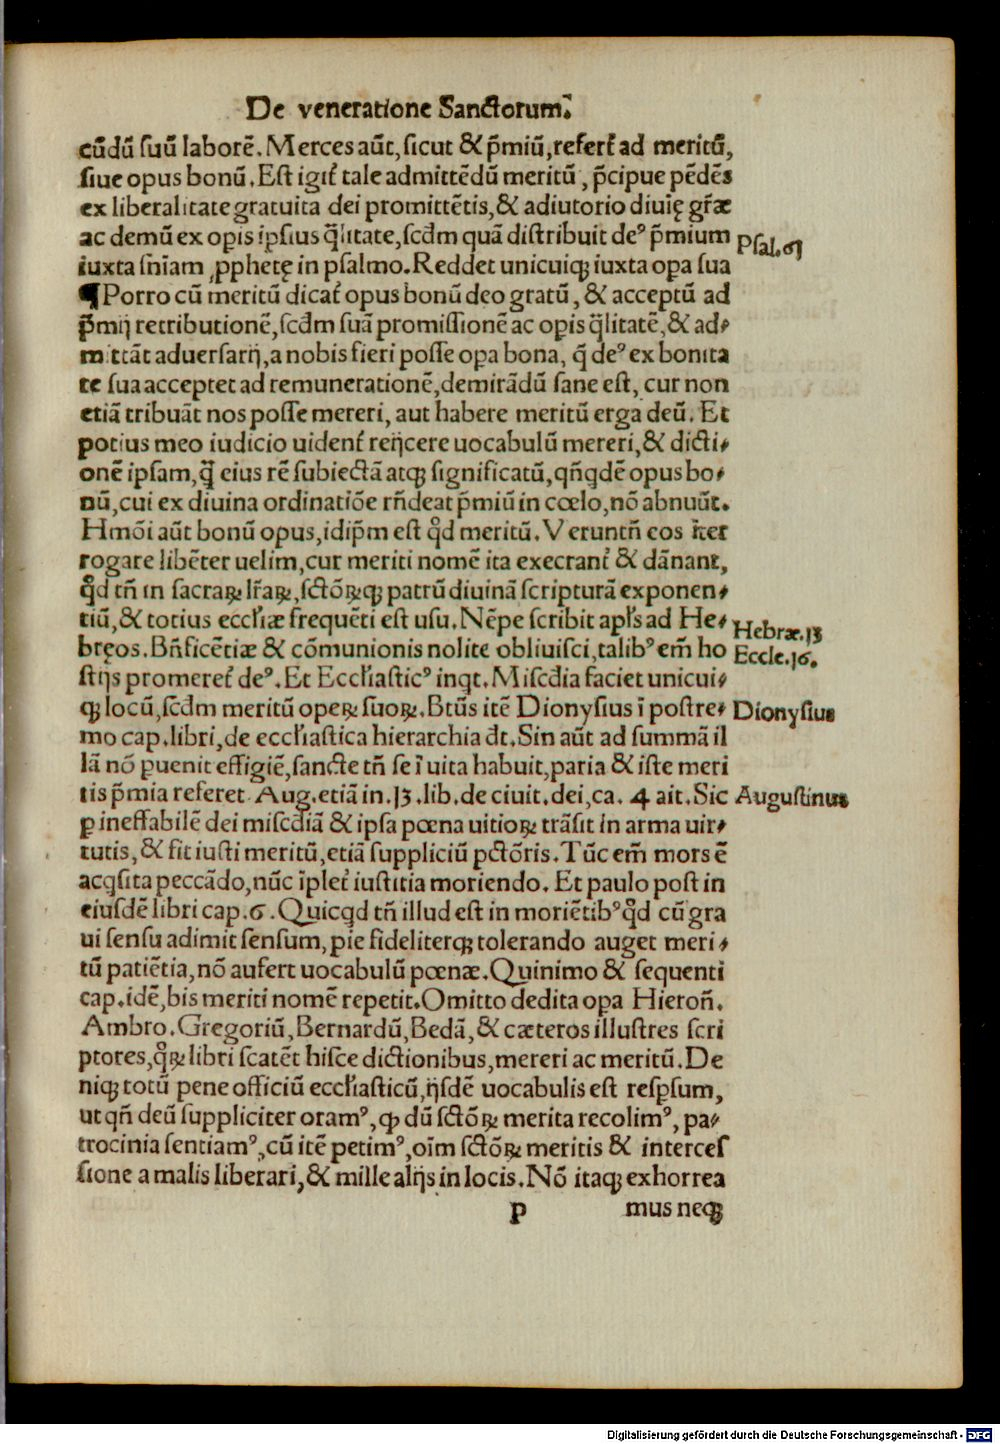 De veneratione Sanctorum.
cũdũ suũ laborẽ. Merces aũt, sicut & p̃miũ, refert̃ ad meritũ,
siue opus bonũ. Est igit̃ tale admittẽdũ meritũ, p̃cipue pẽdẽs
ex liberalitate gratuita dei promittẽtis, & adiutorio diuię gr̃æ
ac demũ ex opis ipsius q̃litate, scd̃m quã distribuit deꝰ p̃mium
Psal. 61
iuxta sñiam ꝓphetę in psalmo. Reddet unicuiqꝫ iuxta oꝑa sua
¶ Porro cũ meritũ dicat̃ opus bonũ deo gratũ, & acceptũ ad
p̃mij retributionẽ, scd̃m suã promissionẽ ac opis q̃litatẽ, & ad⸗
mittãt aduersarij, a nobis fieri posse oꝑa bona, q̃ deꝰ ex bonita
te sua acceptet ad remunerationẽ, demirãdũ sane est, cur non
etiã tribuãt nos posse mereri, aut habere meritũ erga deũ. Et
potius meo iudicio uident̃ reijcere uocabulũ mereri, & dicti⸗
onẽ ipsam, q̃ eius rẽ subiectã atqꝫ significatũ, qñqdẽ opus bo⸗
nũ, cui ex diuina ordinatiõe rñdeat p̃miũ in cœlo, nõ abnuũt.
Hmõi aũt bonũ opus, idip̃m est qd̃ meritũ. Veruntñ eos iter
rogare libẽter uelim, cur meriti nomẽ ita execrant̃ & dãnant,
qd̃ tñ in sacraꝝ lr̃aꝝ, sctõꝝqꝫ patrũ diuinã scripturã exponen⸗
tiũ, & totius eccl̃iæ frequẽti est usu. Nẽpe scribit apl̃s ad He⸗
Hebræ. 13
bręos. Bñficẽtiæ & cõmunionis nolite obliuisci, talibꝰ em̃ ho
Eccle. 16.
stijs promeret̃ deꝰ. Et Eccl̃iasticꝰ inqt. Miscd̃ia faciet unicui⸗
qꝫ locũ, scd̃m meritũ oꝑeꝝ suoꝝ. Btũs itẽ Dionysius ĩ postre⸗
Dionysius
mo cap. libri, de eccl̃iastica hierarchia dt̃. Sin aũt ad summã il
lã nõ ꝑuenit effigiẽ, sancte tñ se ĩ uita habuit, paria & iste meri
tis p̃mia referet. Aug. etiã in. 13. lib. de ciuit. dei, ca. 4 ait. Sic
Augustinus
ꝑ ineffabilẽ dei miscd̃iã & ipsa pœna uitioꝝ trãsit in arma uir⸗
tutis, & fit iusti meritũ, etiã suppliciũ pctõris. Tũc em̃ mors ẽ
acqsita peccãdo, nũc ĩplet̃ iustitia moriendo. Et paulo post in
eiusdẽ libri cap. 6. Quicqd tñ illud est in moriẽtibꝰ qd̃ cũ gra
ui sensu adimit sensum, pie fideliterqꝫ tolerando auget meri⸗
tũ patiẽtia, nõ aufert uocabulũ pœnæ. Quinimo & sequenti
cap. idẽ, bis meriti nomẽ repetit. Omitto dedita oꝑa Hieroñ.
Ambro. Gregoriũ, Bernardũ, Bedã, & cæteros illustres scri
ptores, qꝝ libri scatẽt hisce dictionibus, mereri ac meritũ. De
niqꝫ totũ pene officiũ eccl̃iasticũ, ijsdẽ uocabulis est respsum,
ut qñ deũ suppliciter oramꝰ, ꝙ dũ sctõꝝ merita recolimꝰ, pa⸗
trocinia sentiamꝰ, cũ itẽ petimꝰ, oĩm sctõꝝ meritis & interces
sione a malis liberari, & mille alijs in locis. Nõ itaqꝫ exhorrea
p mus neqꝫ
Digitalisierung gefördert durch die Deutsche Forschungsgemeinschaft - DFG